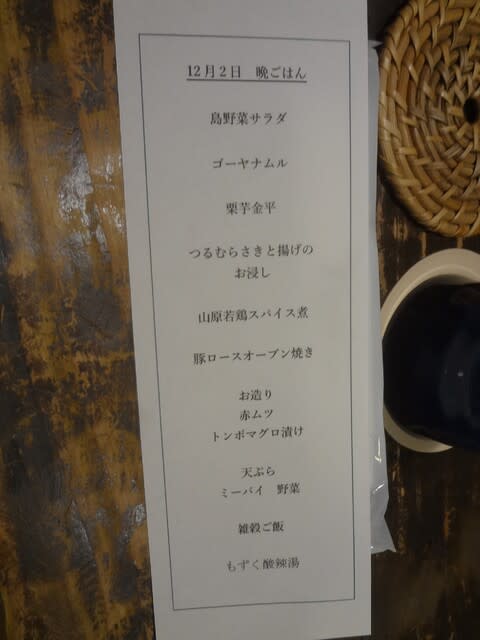 12月2日　晩ごはん
島野菜サラダ
ゴーヤナムル
栗芋金平
つるむらさきと揚げの
お浸し
山原若鶏スパイス煮
豚ロースオーブン焼き
お造り
赤ムツ
トンボマグロ漬け
天ぷら
ミーバイ　野菜
雑穀ご飯
もずく酸辣湯